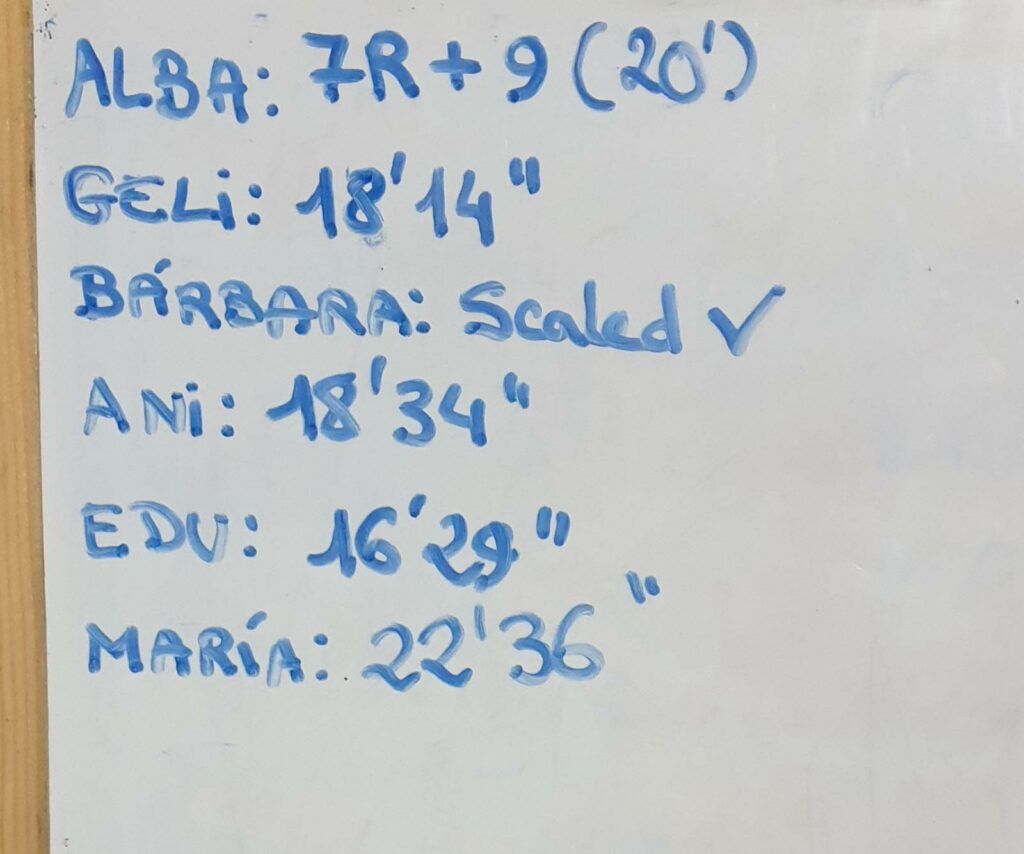 ALBA: 7R + 9 (20')
GELi: 18'14"
BÁRBARA: Scaled ✓
ANi: 18'34"
EDU: 16'29"
MARÍA: 22'36"